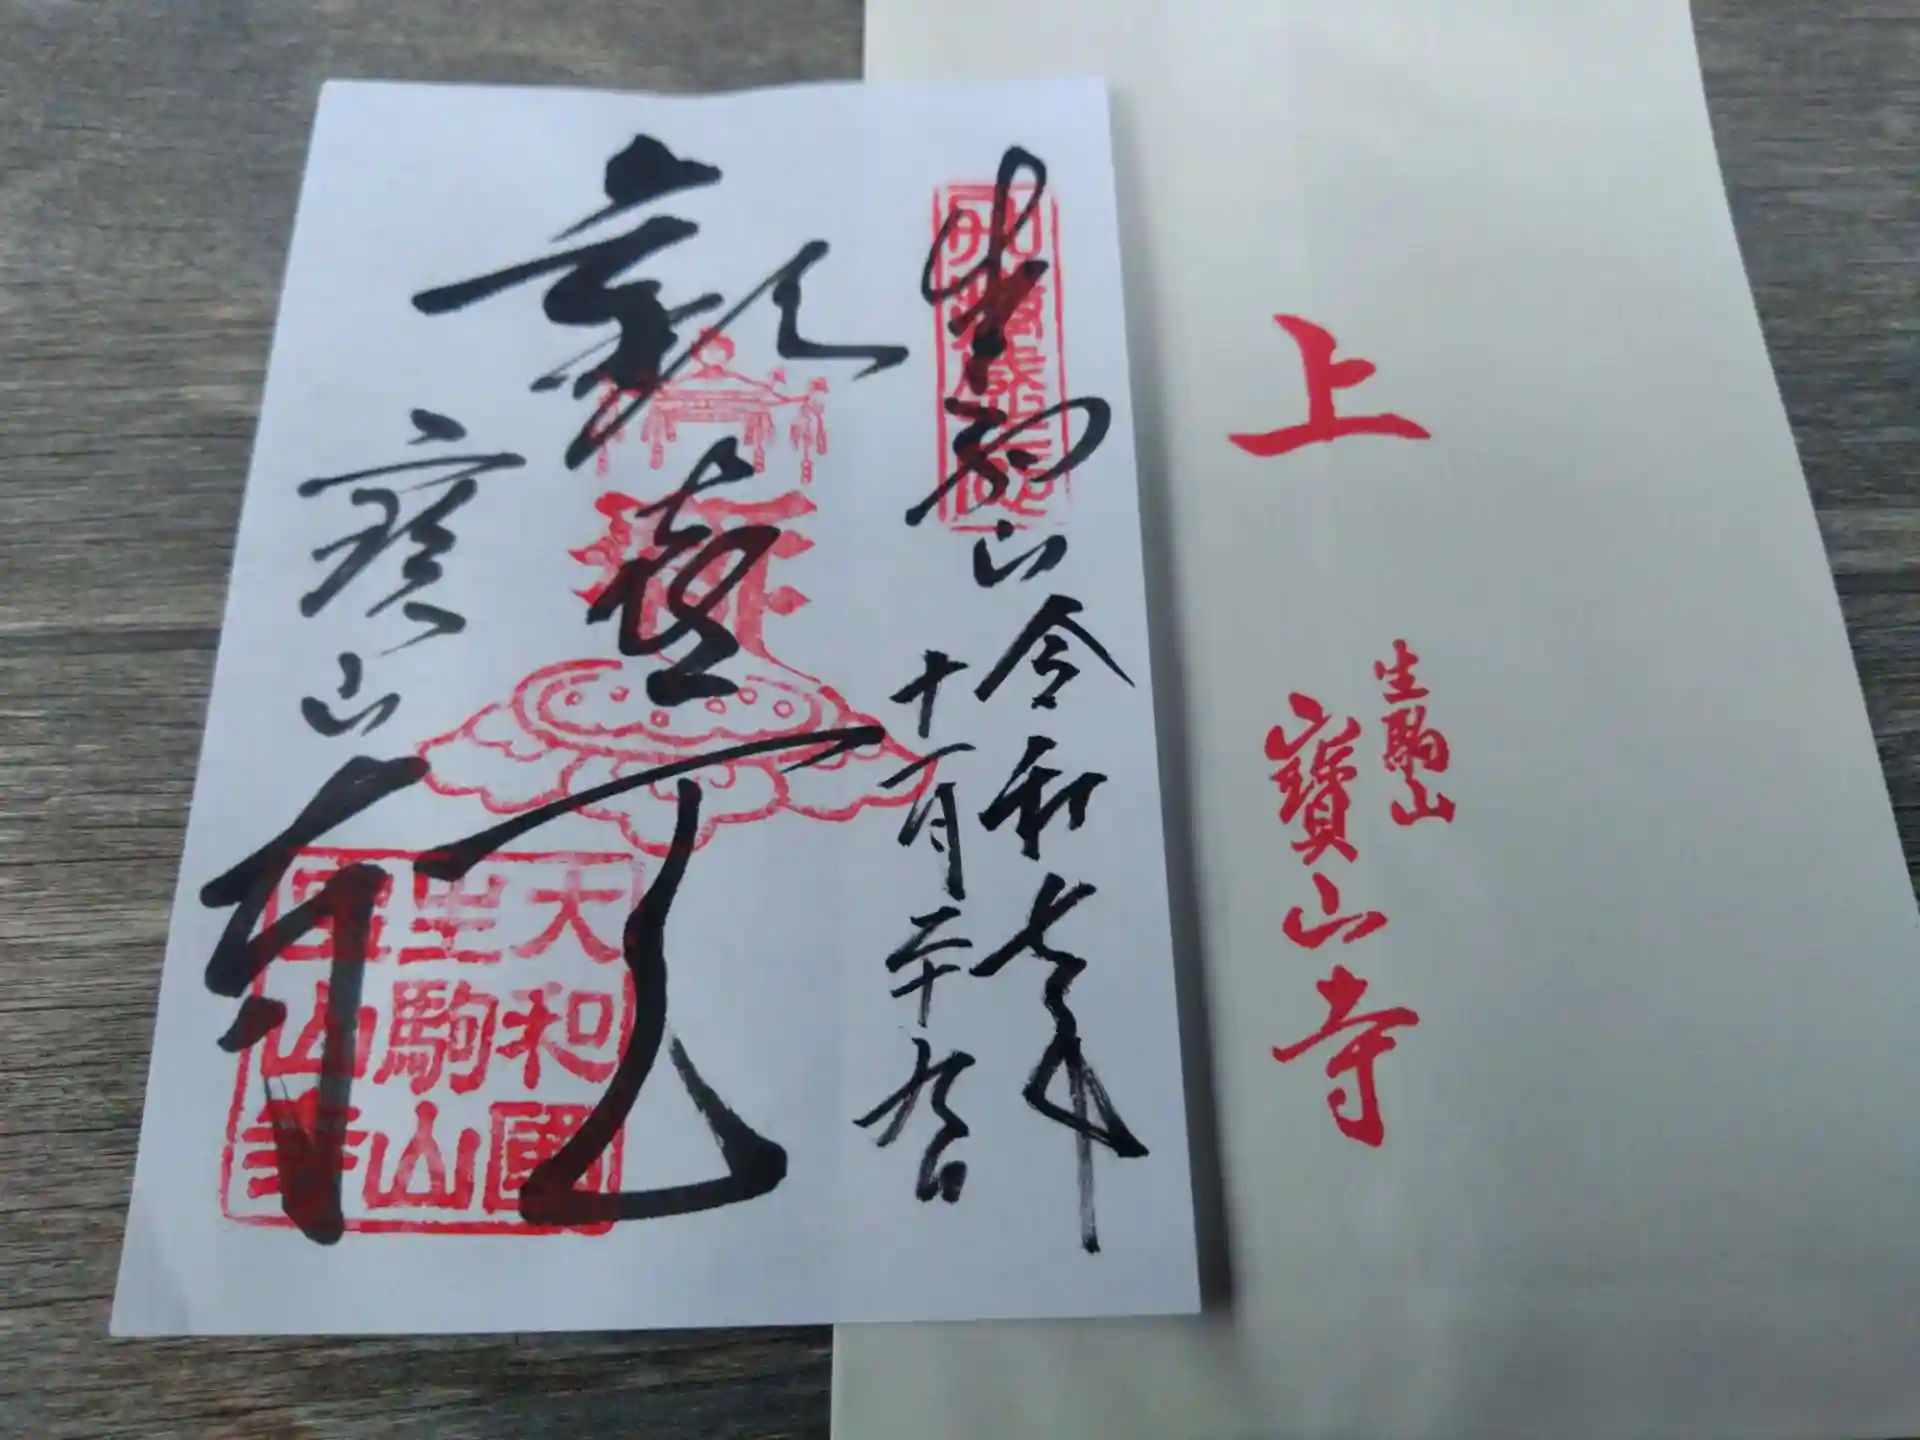 生駒山
令和七年
十一月二十九日
歡喜天
寶山寺
大和國
生駒山
寶山寺
上
生駒山
寶山寺